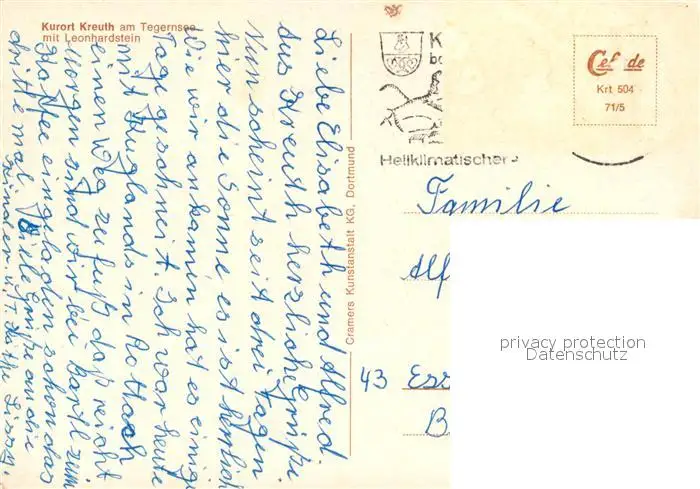 Kurort Kreuth am Tegernsee
mit Leonhardstein
Liebe Elisabeth und Alfred.
Aus Kreuth herzliche Grüße
Nun scheint seit drei Tagen
hier die Sonne es ist herrlich
Wie wir ankamen hat es einige
Tage geschneit. Ich war heute
mit Huglands in Rottach
einen Weg zu fuß daß reicht
Morgen sind wir bei Bartl zum
Kaffee eingeladen schon das
dritte mal. Viele Grüße an die
Kinder u. T. Käthe Sissy.
Cramers Kunstanstalt KG, Dortmund
K
Heilklimatischer
Cef de
Krt 504
71/5
Familie
Alf
43 Ess
B
privacy protection
Datenschutz